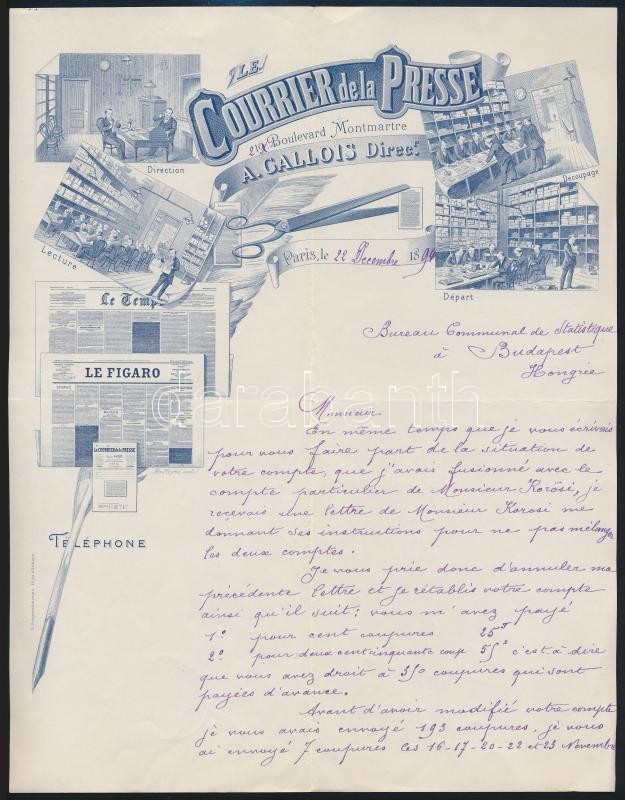 LE
COURRIER de la PRESSE
21 Boulevard Montmartre
A. GALLOIS Direct.r
Direction
Découpage
Lecture
Départ
Paris, le 22 Décembre 1890
Le Temps
LE FIGARO
LE COURRIER de la PRESSE
TÉLÉPHONE
Bureau Communal de Statistique
à Budapest
Hongrie
Monsieur
En même temps que je vous écrivais
pour vous faire part de la situation de
votre compte, que j'avais fusionné avec le
compte particulier de Monsieur Korösi, je
recevais une lettre de Monsieur Korosi me
donnant ses instructions pour ne pas mélanger
les deux comptes.
Je vous prie donc d'annuler ma
précédente lettre et je rétablis votre compte
ainsi qu'il suit: vous m'avez payé
1º pour cent coupures 25 f
2º pour deux cent cinquante coup 55 f c'est à dire
que vous avez droit à 350 coupures qui sont
payées d'avance.
Avant d'avoir modifié votre compte
je vous avais envoyé 193 coupures, je vous
ai envoyé 7 coupures les 16-17-20-22 et 23 Novembre
darabanth